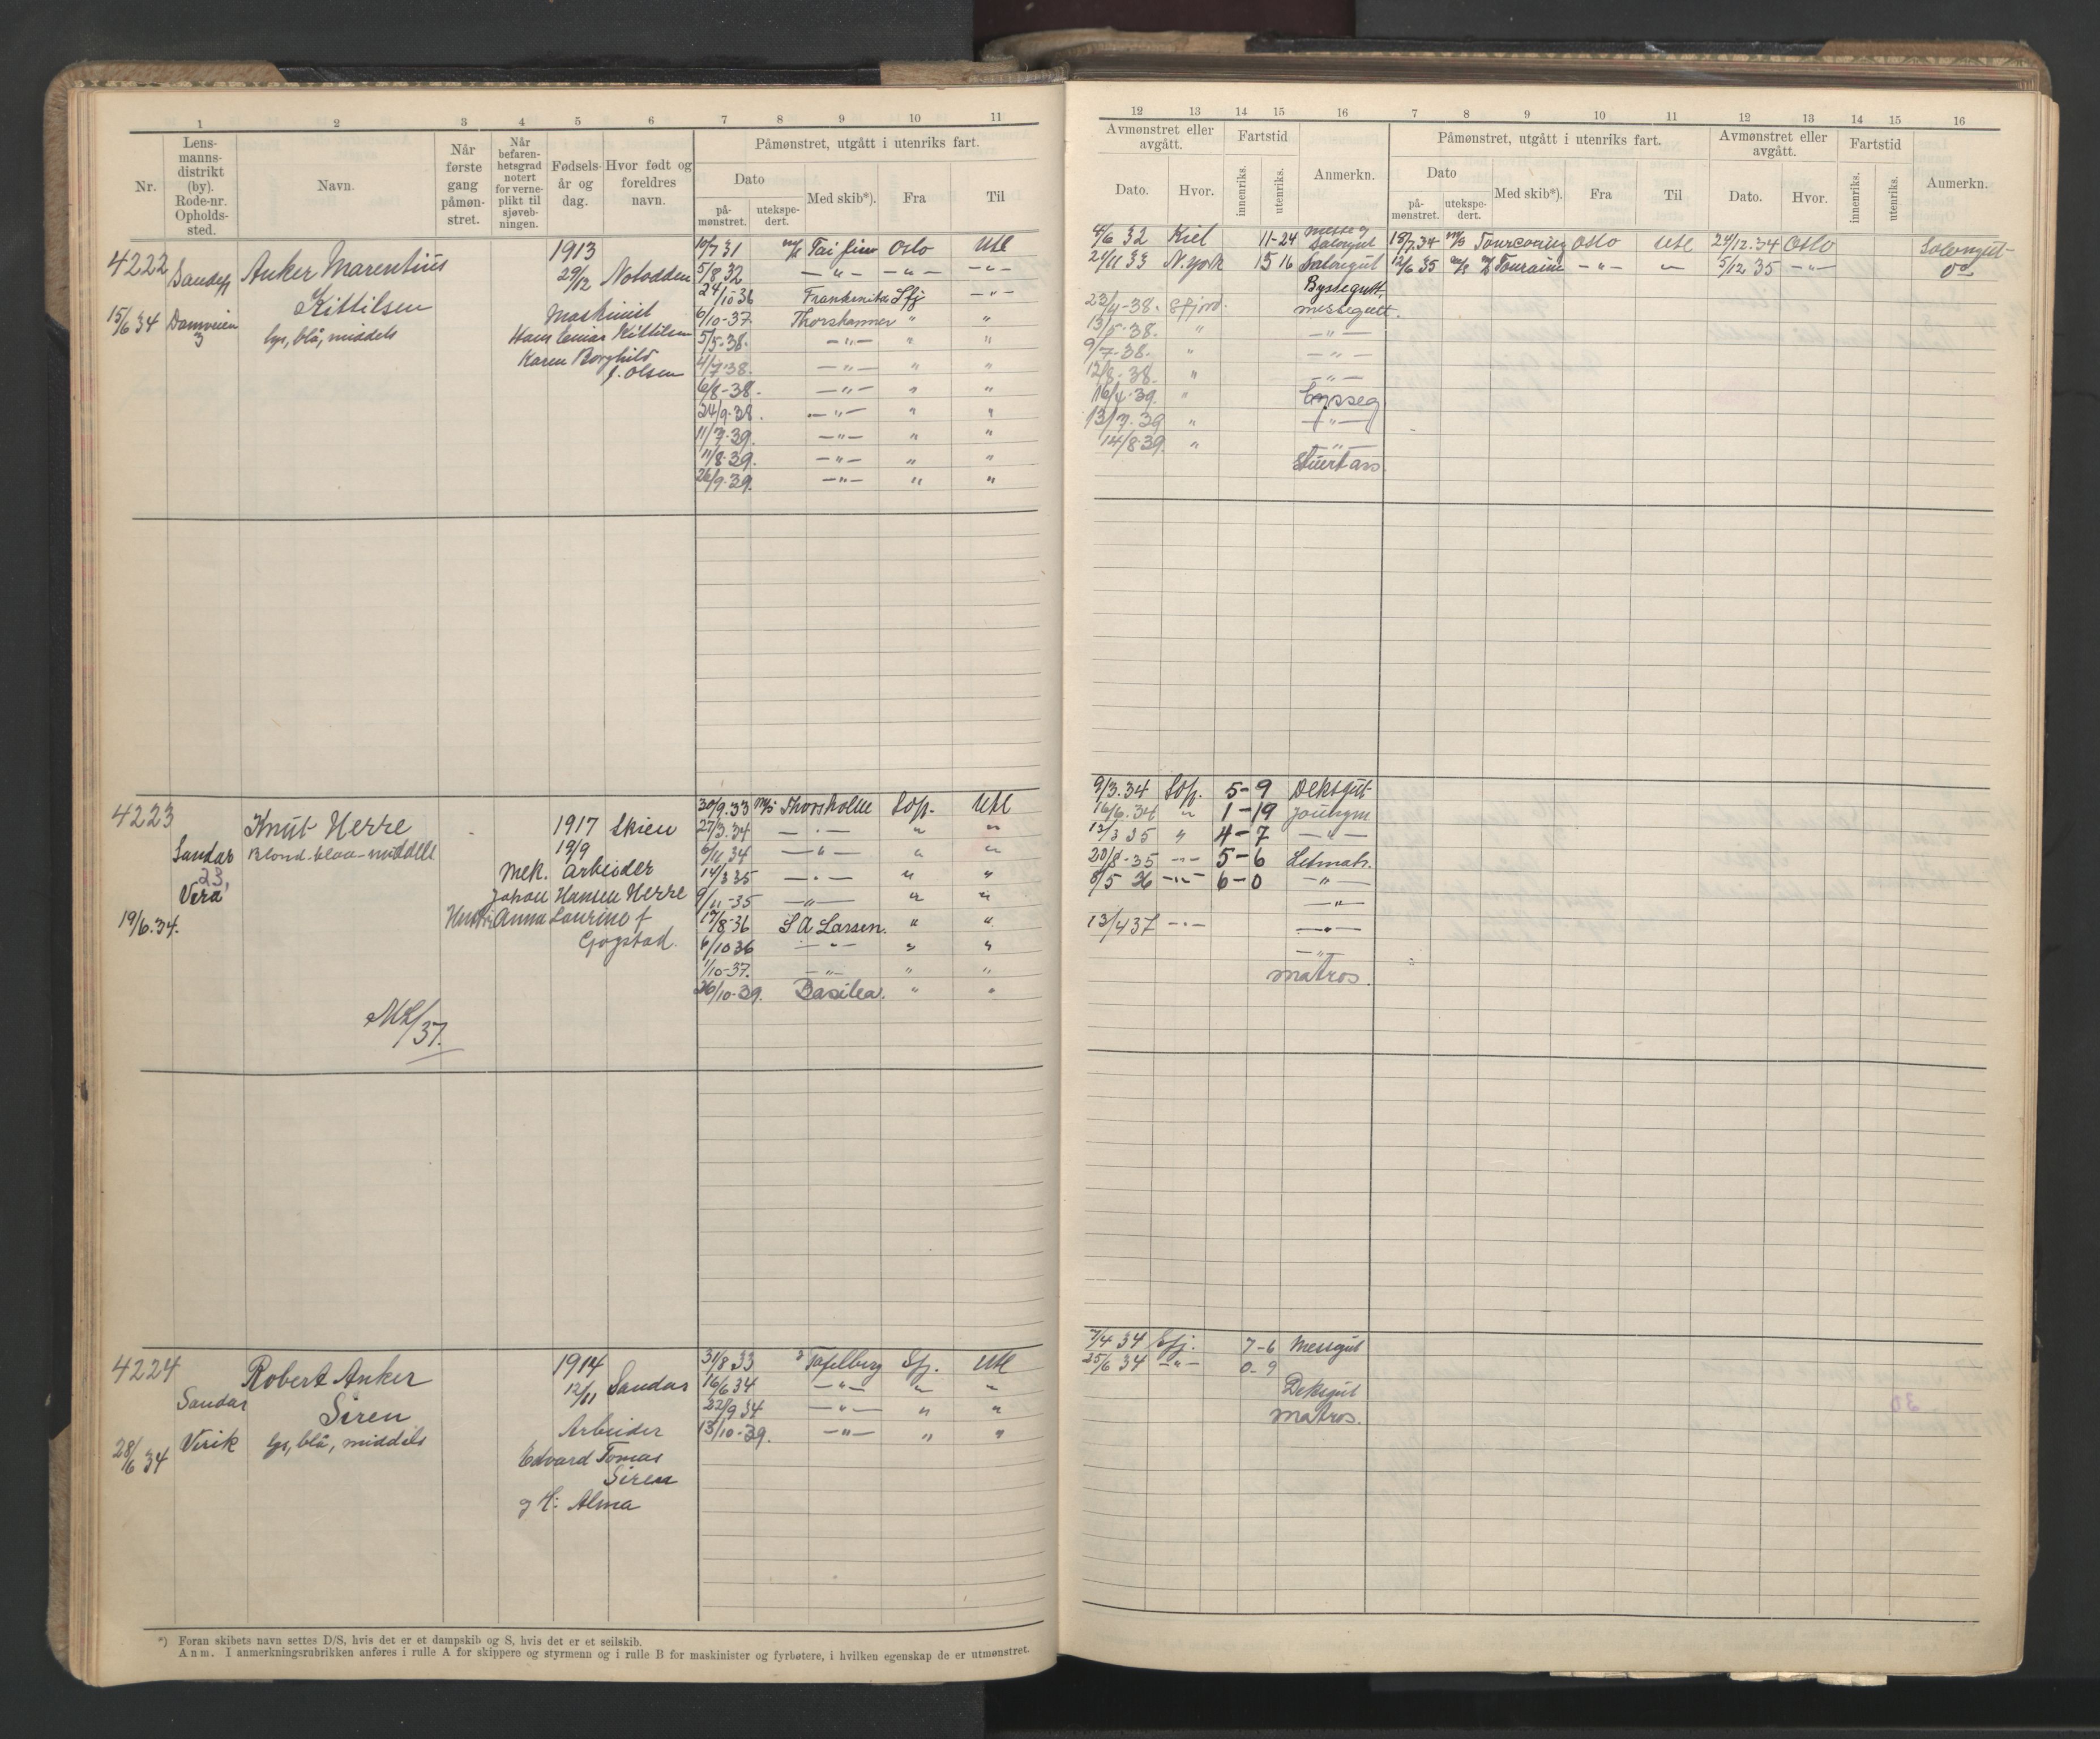 1 2 3 4 5 6 7 8 9 10 11
Nr.
Lens-
manns-
distrikt
(by).
Rode-nr.
Opholds-
sted.
Navn.
Når
første
gang
påmøn-
stret.
Når
befaren-
hetsgrad
notert
for verne-
plikt til
sjøveb-
ningen.
Fødsels-
år og
dag.
Hvor født og
foreldres
navn.
Påmønstret, utgått i utenriks fart.
Dato
på-
mønstret.
utekspe-
dert.
Med skib*).
Fra
Til
4222 Sandefj Anker Marentius 1913
Kittilsen 29/12 Notodden
15/6 34 Damveien
3
lys, blå, middels
Maskinist
Hans Einar Kittilsen
Karen Borghild
f. Olsen
10/7 31 m/s Tai Oslo Utl
5/8 32 —"— —"— —"—
24/10-36 Sfj —"—
6/10-37 Thorshammer " "
5/5-38. —"— " "
4/7 38. —"— " "
6/8-38. —"— " "
24/9-38. —"— " "
11/7-39. —"— " "
11/8-39. —"— " "
26/9-39. —"— " "
4223
Knut Herre 1917 Skien
Sandar Blond-blaa-middels 19/9
23,
Vera
19/6.34.
Mek. Arbeider
Johan Hansen Herre
Hustru Anna Laurine f
Gogstad.
MK/37.
30/9.33 m/s Thorsholm Sdfj. Utl
27/3.34 —"— " "
6/11 34 —"— " "
14/3 35 —"— " "
9/11-35 —"— " "
17/8-36 S A Larsen. " "
6/10 36 —"— " "
1/10-37. —"— " "
26/10-39. Basilea. " "
4224 Robert Anker 1914
Sandar Siren 12/11 Sandar
28/6 34 Virik lys, blå, middels
Arbeider
Edvard Tomas
Siren
og H: Alma
31/8 33 Tafelberg Sfj. Utl
16/6 34 —"— " "
22/9 34 —"— " "
13/10-39. —"— " "
*) Foran skibets navn settes D/S, hvis det er et dampskib og S, hvis det er et seilskib.
Anm. I anmerkningsrubrikken anføres i rulle A for skippere og styrmenn og i rulle B for maskinister og fyrbøtere, i hvilken egenskap de er utmønstret.
12 13 14 15 16 7 8 9 10 11 12 13 14 15 16
Avmønstret eller
avgått.
Dato.
Hvor.
Fartstid
innenriks.
utenriks.
Anmerkn.
Påmønstret, utgått i utenriks fart.
Dato
på-
mønstret.
utekspe-
dert.
Med skib*).
Fra
Til
Avmønstret eller
avgått.
Dato.
Hvor.
Fartstid
innenriks.
utenriks.
Anmerkn.
4/6 32 Kiel 11-24 Messe og
Salongut 13/7.34 m/s Tourcoing Oslo Utl 24/12.34 Oslo Salongut
21/11 33 N.york 15 16 Salongut 12/6 35 m/s Touraine —"— " 5/12 35 —"— do
Byssegutt.
23/4-38. Sfjord. messegutt.
13/5-38. " —"—
9/7-38. " —"—
12/8-38. " —"—
16/4-39. " Bysseg
13/7.39 " —"—
14/8-39. " —"—
Stuert ass.
9/3.34 Sdfj. 5-9 Deksgut
16/6.34 " 1-19 Jungm
13/3 35 " 4-7 —"—
20/8-35 —"— 5-6 Letmatr.
8/5 36 —"— 6-0 —"—
—"—
13/4 37 —"— —"—
—"—
matros.
7/4 34 Sfj. 7-6 Messgut
25/6 34 —"— 0-9
Deksgut
matros.